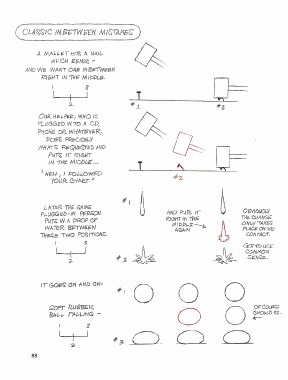 CLASSIC INBETWEEN MISTAKES
A MALLET HITS A NAIL
WHICH BENDS -
AND WE WANT ONE INBETWEEN
RIGHT IN THE MIDDLE.
1 3
2
#1
#3
OUR HELPER, WHO IS
PLUGGED INTO A CD,
PHONE OR WHATEVER,
DOES PRECISELY
WHAT'S REQUESTED AND
PUTS IT RIGHT
IN THE MIDDLE...
"WELL, I FOLLOWED
YOUR CHART."
#2
LATER THE SAME
PLUGGED-IN PERSON
PUTS IN A DROP OF
WATER BETWEEN
THESE TWO POSITIONS.
1 3
2
#1
#3
AND PUTS IT
RIGHT IN THE
MIDDLE
AGAIN
OBVIOUSLY
THE CHANGE
ONLY TAKES
PLACE ON THE
CONTACT.
GOT TO USE
COMMON
SENSE.
IT GOES ON AND ON:
SOFT RUBBER
BALL FALLING -
1 3
2
#1
#3
OF COURSE
SHOULD BE.
88